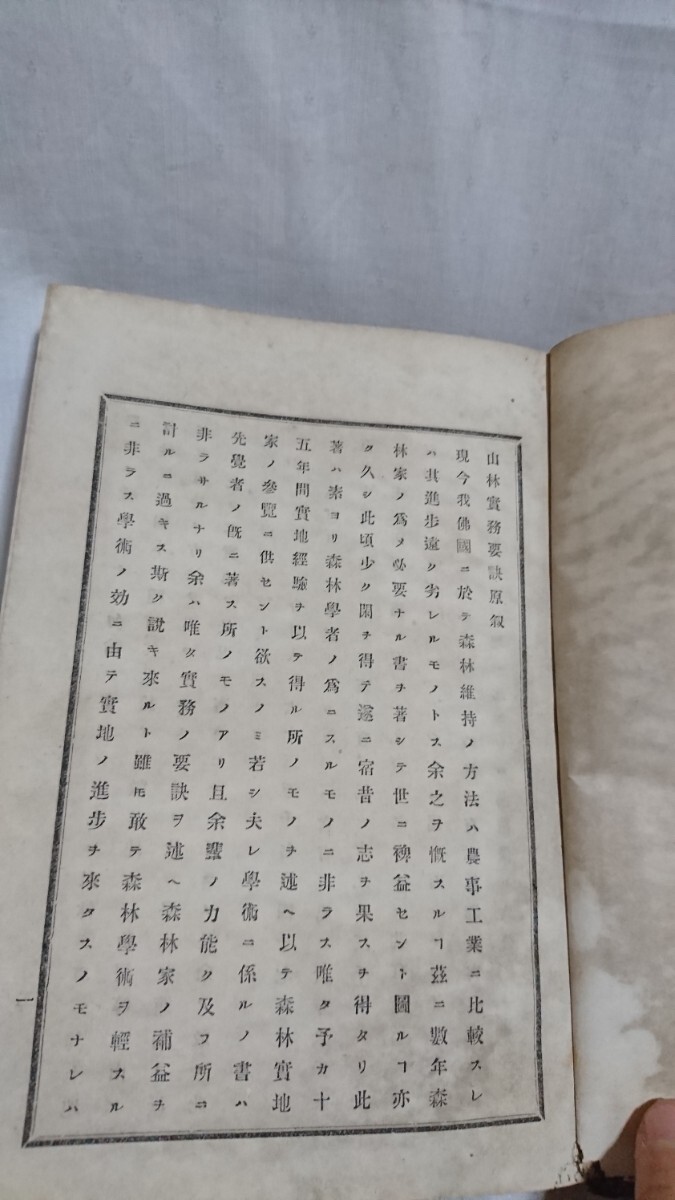 山林實務要訣原叙
現今我佛國ニ於テ森林維持ノ方法ハ農事工業ニ比較スレ
ハ其進歩遠ク劣レルモノトス余之ヲ慨スルヿ茲ニ數年森
林家ノ爲メ必要ナル書ヲ著シテ世ニ裨益セント圖ルヿ亦
タ久シ此頃少ク閑ヲ得テ遂ニ宿昔ノ志ヲ果スヲ得タリ此
著ハ素ヨリ森林學者ノ爲ニスルモノニ非ラス唯タ予カ十
五年間實地經驗ヲ以テ得ル所ノモノヲ述ヘ以テ森林實地
家ノ參覽ニ供セント欲スノミ若シ夫レ學術ニ係ルノ書ハ
先覺者ノ既ニ著ス所ノモノアリ且余輩ノ力能ク及フ所ニ
非ラサルナリ余ハ唯タ實務ノ要訣ヲ述ヘ森林家ノ補益ヲ
計ルニ過キス斯ク說キ來ルト雖𪜈敢テ森林學術ヲ輕スル
ニ非ラス學術ノ効ニ由テ實地ノ進步ヲ來タスノモナレハ
一